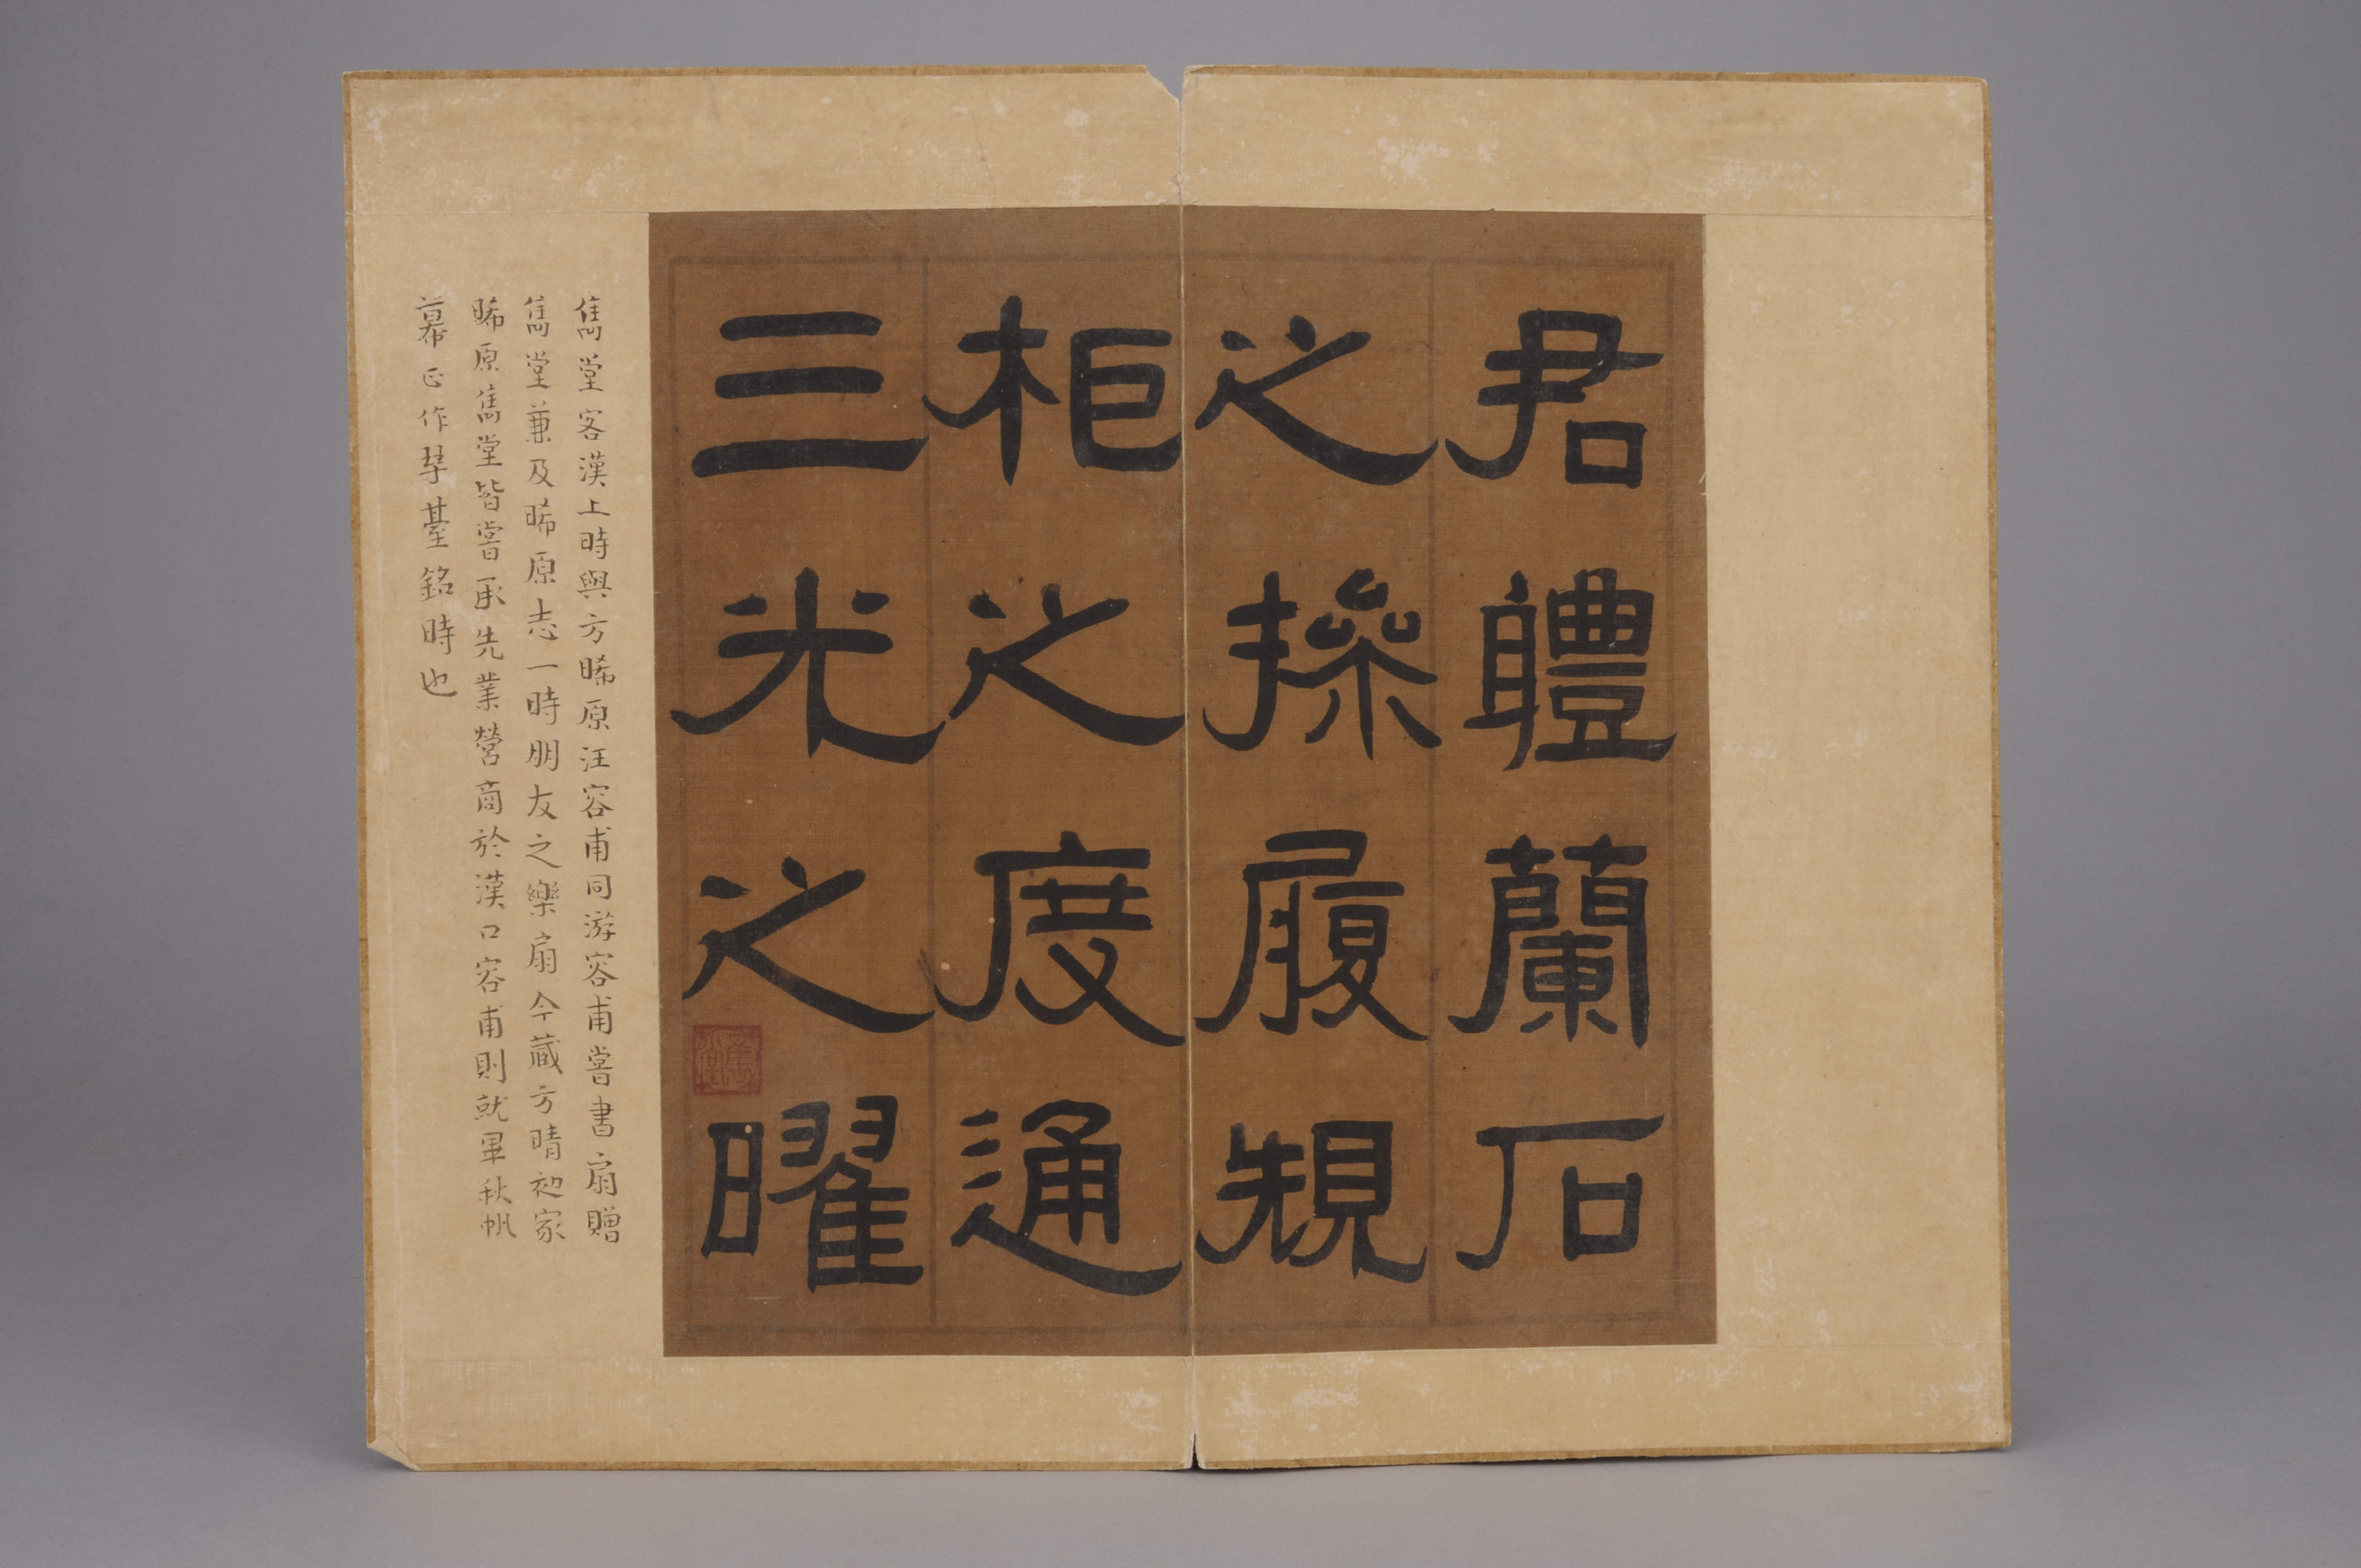 君軆蘭石
之操履規
柜之度通
三光之曜
雋堂
雋堂客漢上時與方晞原汪容甫同游容甫嘗書扇贈
雋堂兼及晞原志一時朋友之樂扇今藏方晴初家
晞原雋堂皆嘗承先業營商於漢口容甫則就畢秋帆
幕正作琴臺銘時也